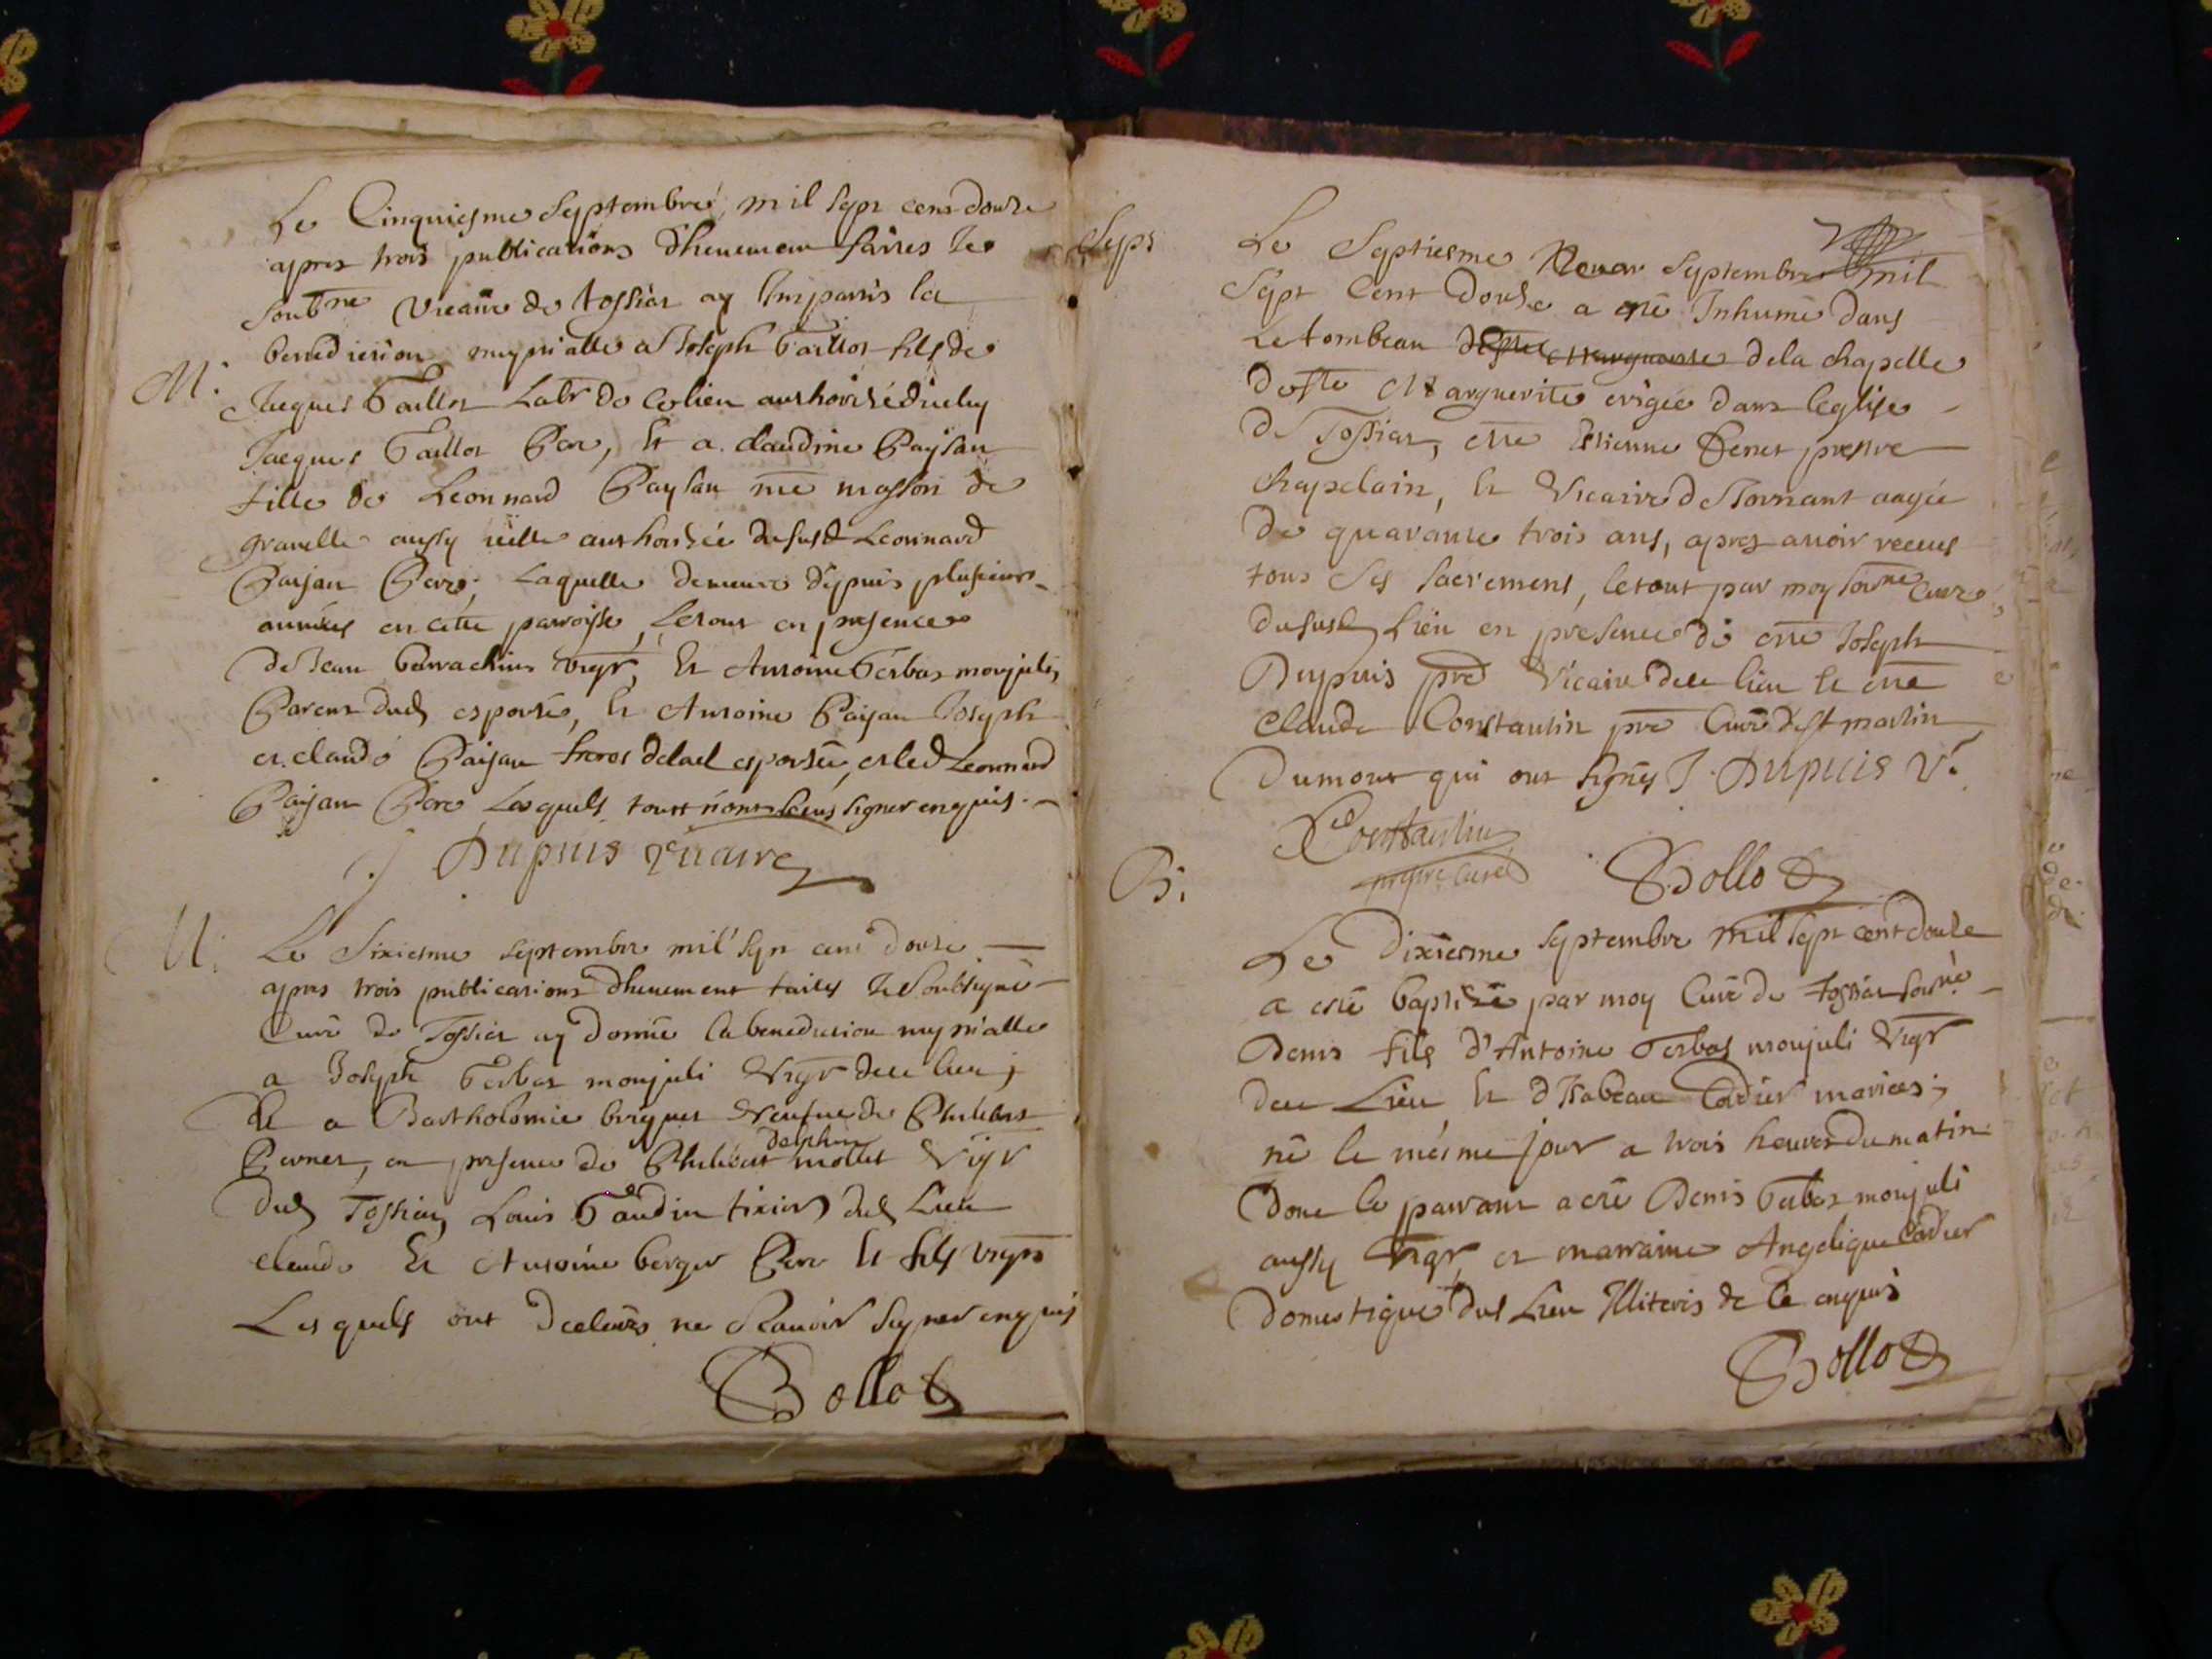 Le Cinquiesme Septembre, mil sept cens douze
apres trois publications dheuement faittes Je
soub.ne Vicaire de tossiat ay Imparti la
benediction nuptialle a Joseph Taillot fils de
M.
Jacques Taillot Lab.r de ce lieu authorisé dudit
Jacques Taillot Pere, Et a Claudine Paysan
fille de Leonnard Paysan me masson de
gravelle aussy icelle authorisée dususd Leonnard
Paisan Pere, Laquelle demeure depuis plusieurs
années en cette parroisse, Letout en presence
de Jean vigr, Et Antoine Terbas monjuli,
Parent dud espousé, Et Antoine Paisan Joseph
et claude Paisan freres de lad espousée, et led Leonnard
Paisan Pere Lesquels tout n'ont sceus signer enquis.
J Dupuis vicaire
M.
Le Sixiesme septembre mil sept cent douze
apres trois publications dheuement faites Je Soubsigné
Curé de Tossiat ay donné la benediction nuptialle
a Joseph Terbas monjuli Vigr dece lieu;
Et a Bartholomie briquet Veufue de Philibert
Pernet, en presence de Philibert mollet Vigr
dauphin
dud Tossiat, Louis Gaudin tixier dud Lieu
claude Et Antoine berger Pere Et fils vigrs
Lesquels ont declarés ne Scavoir signer enquis
Bollot
Sept
Le Septiesme Septembre mil
Sept Cent douze a esté Inhumé dans
Le tombeau de ste Marguerite dela chapelle
de ste Marguerite erigée dans leglise
de Tossiat, mre Estienne Penet prestre
Chapelain, Et Vicaire de Journant aagée
de quarante trois ans, apres avoir receus
tous Ses Sacrements, le tout par moy sou.ne Curé
dususd Lieu en presence de mre Joseph
Dupuis pre Vicaire dece lieu Et mre
Claude Constantin pre Curé de St martin
Dumont qui ont signés J. Dupuis Ve.
Constantin
prestre Curé
Bollot
B.
Le Dixiesme septembre mil sept cent douze
a esté baptisé par moy Curé de tossiat sou.né
Denis fils d'Antoine Terbas monjuli Vigr
dece Lieu Et d'Isabeau Cadier mariees;
né le mesme jour a trois heures du matin
Dont le parrain a esté Denis Terbas monjuli
aussy Vigr, et marraine Angelique Cadier
Domestique dud Lieu Illiteris de ce enquis
Bollot